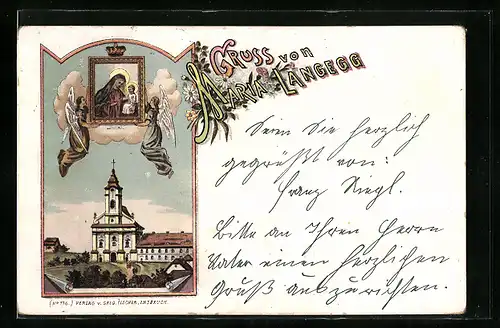 Gruss von
Maria Langegg
Seien Sie herzlich
gegrüßt von:
Franz Siegl.
Bitte an Ihren Herrn
Vater einen herzlichen
Gruß auszurichten.
VERLAG v. FRIED. FISCHER, INNSBRUCK.